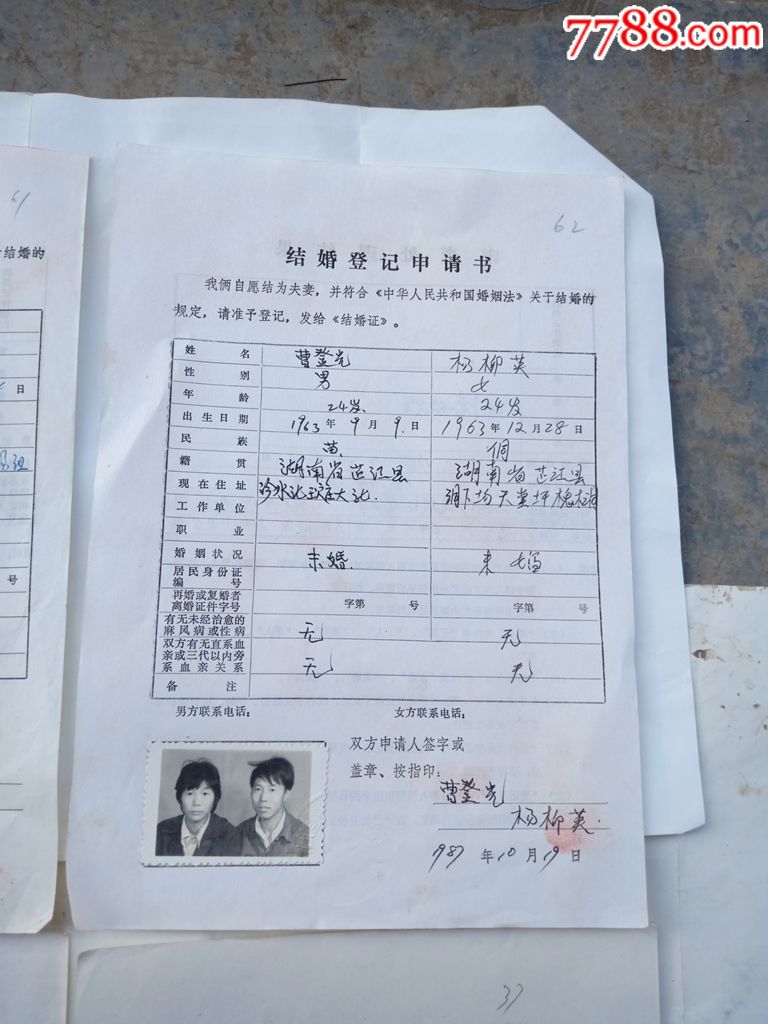 7788.com
61
62
结婚的
结婚登记申请书
我俩自愿结为夫妻，并符合《中华人民共和国婚姻法》关于结婚的
规定，请准予登记，发给《结婚证》。
姓名 曹登光 杨柳英
性别 男 女
年龄 24岁 24岁
出生日期 1963年9月9日 1963年12月28日
民族 苗 侗
籍贯 湖南省芷江县 湖南省芷江县
现在住址 冷水
工作单位
职业
婚姻状况 未婚 未婚
居民身份证
编号
再婚或复婚者
离婚证件字号 字第 号 字第 号
有无未经治愈的
麻风病或性病 无 无
双方有无直系血
亲或三代以内旁
系血亲关系 无 无
备注
男方联系电话： 女方联系电话：
双方申请人签字或
盖章、按指印：
曹登光
杨柳英
1987年10月19日
日
号
37